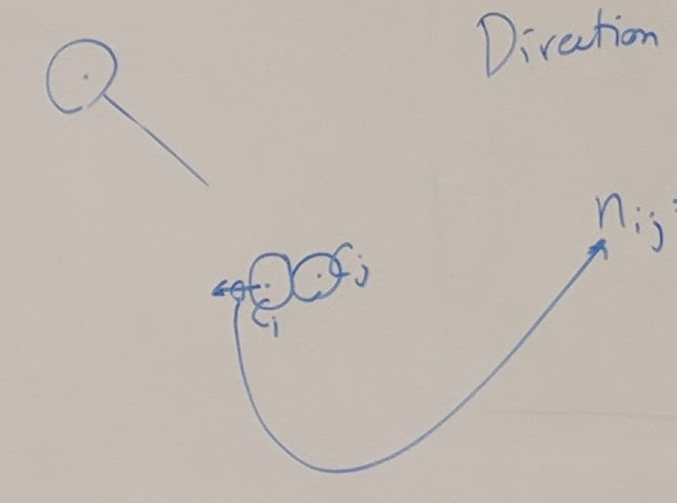 Direction
n_ij
r_j
r_i